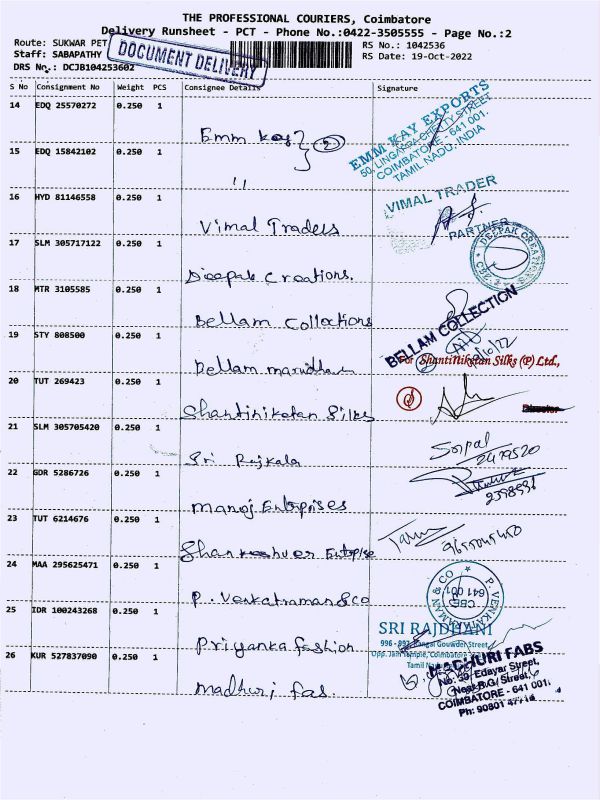 THE PROFESSIONAL COURIERS, Coimbatore
Delivery Runsheet - PCT - Phone No.:0422-3505555 - Page No.:2
Route: SUKWAR PET
RS No.: 1042536
Staff: SABAPATHY
RS Date: 19-Oct-2022
DRS No.: DCJB104253602
DOCUMENT DELIVERY
S No Consignment No Weight PCS Consignee Details Signature
14 EDQ 25570272 0.250 1
Emm Kay 2
EMM KAY EXPORTS
COIMBATORE - 641 001.
TAMIL NADU. INDIA
15 EDQ 15842102 0.250 1
"
16 HYD 81146558 0.250 1
Vimal Traders
VIMAL TRADER
PARTNER
17 SLM 305717122 0.250 1
Deepak Creations.
DEEPAK CREATIONS
CBE-1
18 MTR 3105585 0.250 1
Bellam Collections
BELLAM COLLECTION
19 STY 808500 0.250 1
Bellam
For ShantiNiketan Silks (P) Ltd.,
20 TUT 269423 0.250 1
Shantiniketan Silks
Director
21 SLM 305705420 0.250 1
Sri Rajkala
22 GDR 5286726 0.250 1
Manoj Entrpises
23 TUT 6214676 0.250 1
Entrpise
24 MAA 295625471 0.250 1
P. Venkatraman & Co
P. VENKATRAMAN & CO
641 001
25 IDR 100243268 0.250 1
Priyanka fashion
SRI RAJDHANI
Opp. Jain Temple, Coimbatore
26 KUR 527837090 0.250 1
Madhuri fas
FABS
No: 39, Edayar Street,
Near R.G. Street,
COIMBATORE - 641 001.